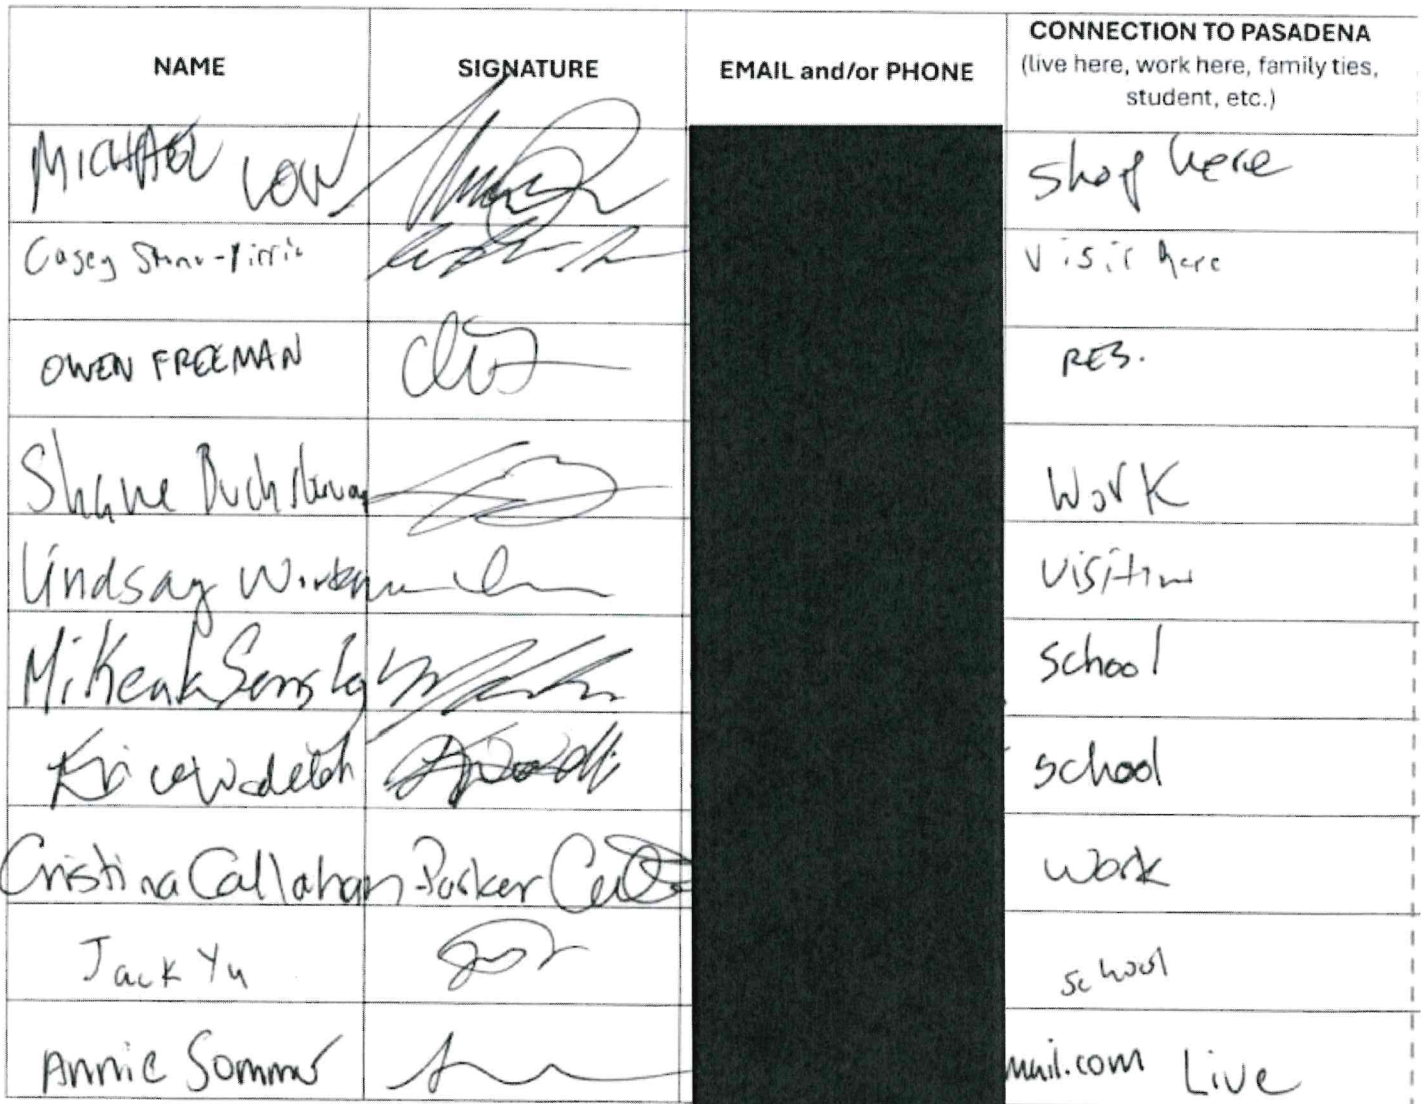 NAME SIGNATURE EMAIL and/or PHONE CONNECTION TO PASADENA
(live here, work here, family ties,
student, etc.)
MICHAEL LOW shop here
Casey visit here
OWEN FREEMAN RES.
Shane Work
Lindsay Workman visiting
school
school
Cristina Callahan-Parker work
Jack Yu school
Annie Sommer mail.com Live